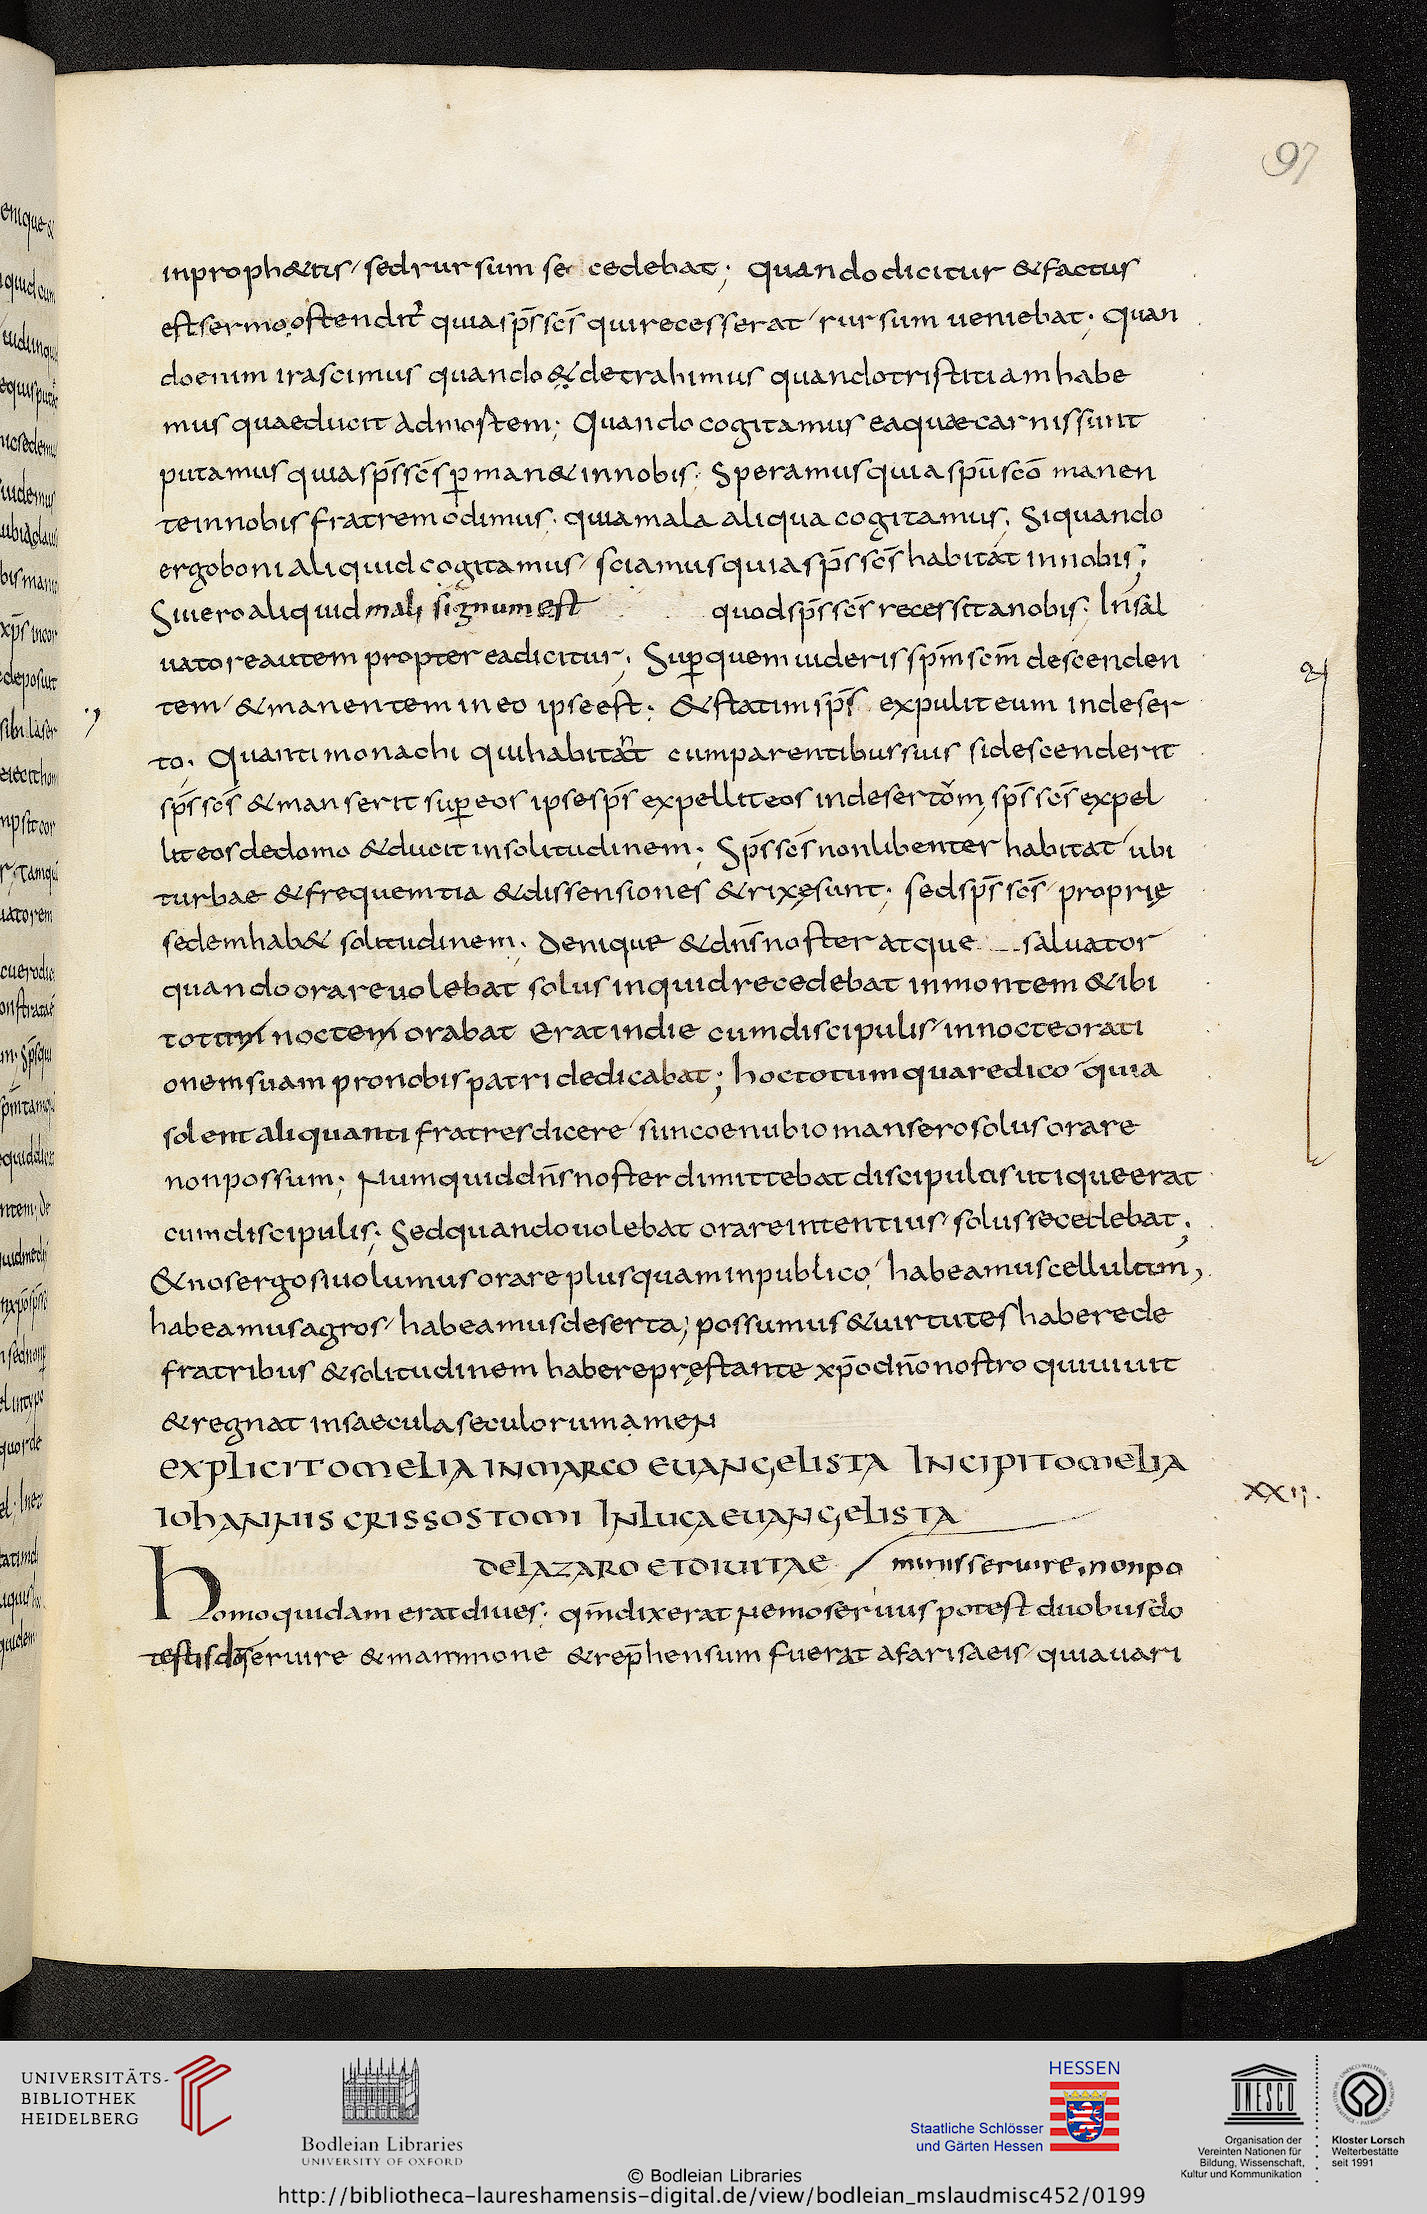 97
inproph&tis / sed rursum se cedebat; quando dicitur & factus
est sermo. ostendit̃ quia sp̄s sc̄s qui recesserat / rursum ueniebat; quan
do enim irascimus quando & detrahimus quando tristitiam habe
mus quae ducit ad mortem; Quando cogitamus ea quae carnis sunt
putamus quia sp̄s sc̄s ꝑman& in nobis; Speramus quia sp̄u sc̄o manen
te in nobis fratrem odimus; quia mala aliqua cogitamus; Si quando
ergo boni aliquid cogitamus / sciamus quia sp̄s sc̄s habitat in nobis;
Si uero aliquid mali signum est quod sp̄s sc̄s recessit a nobis; In sal
uatore autem propter ea dicitur; Suꝑ quem uideris sp̄m sc̄m descenden
tem / & manentem in eo ipse est; & statim sp̄s expulit eum in deser
to; Quanti monachi qui habitant cum parentibus suis si descenderit
sp̄s sc̄s & manserit suꝑ eos ipse sp̄s expellit eos in desertom, sp̄s sc̄s expel
lit eos de domo & ducit in solitudinem; Sp̄s sc̄s non libenter habitat / ubi
turbae & frequentia & dissensiones & rixę sunt; sed sp̄s sc̄s / proprię
sedem hab& solitudinem; Denique & dn̄s noster atque saluator
quando orare uolebat solus inquid recedebat in montem & ibi
totam noctem orabat erat in die cum discipulis / in nocte orati
onem suam pro nobis patri dedicabat; hoc totum quare dico / quia
solent aliquanti fratres dicere / si in coenubio mansero solus orare
non possum; Numquid dn̄s noster dimittebat discipulus utique erat
cum discipulis; Sed quando uolebat orare intentius / solus secedebat;
& nos ergo si uolumus orare plus quam in publico / habeamus cellulam,
habeamus agros / habeamus deserta; possumus & uirtutes habere de
fratribus & solitudinem habere pręstante xp̄o dn̄o nostro qui uiuit
& regnat in saecula seculorum amen
EXPLICIT OMELIA IN MARCO EUANGELISTA INCIPIT OMELIA
IOHANNIS CRISSOSTOMI IN LUCA EUANGELISTA
XXII.
DE LAZARO ET DIUITAE / minis seruire. non po
Homo quidam erat diues; qm̄ dixerat Nemo seruus potest duobus do
testis dō seruire & mammone & rep̄hensum fuerat a farisaeis / quia uari
UNIVERSITÄTS-
BIBLIOTHEK
HEIDELBERG
Bodleian Libraries
UNIVERSITY OF OXFORD
HESSEN
Staatliche Schlösser
und Gärten Hessen
UNESCO
Organisation der
Vereinten Nationen für
Bildung, Wissenschaft,
Kultur und Kommunikation
Kloster Lorsch
Welterbestätte
seit 1991
© Bodleian Libraries
http://bibliotheca-laureshamensis-digital.de/view/bodleian_mslaudmisc452/0199